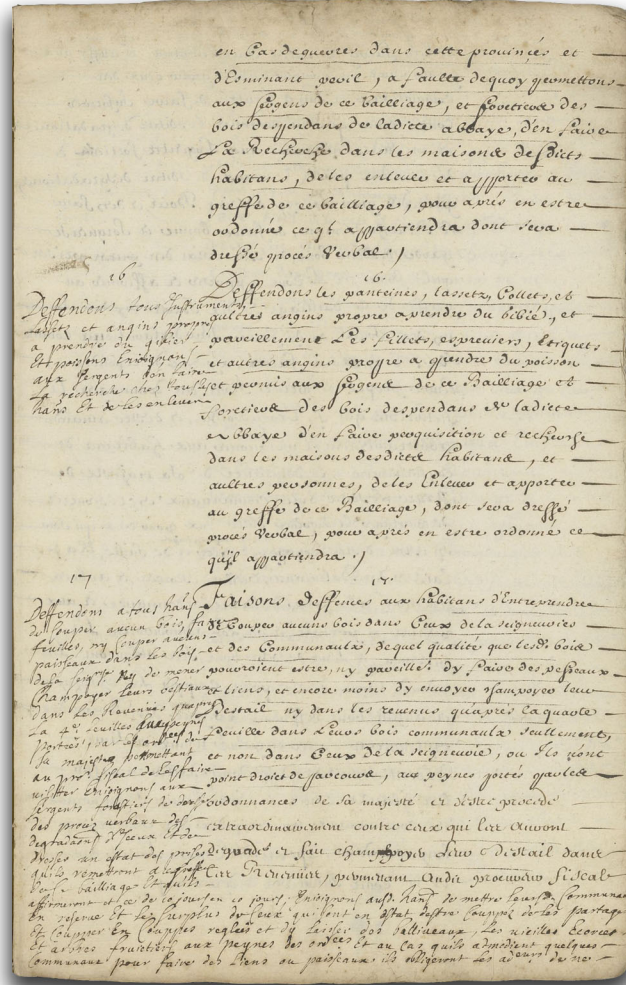 en Cas de guerres dans cette provinces et
d'Eminant peril, a faulte de quoy permettons
aux sergens de ce bailliage, et forestiers des
bois despendans de ladicte abbaye, d'en faire
La Recherche dans les maisons desdicts
habitans, de les enlever et apporter au
greffe de ce bailliage, pour aprés en estre
ordonné ce qt appartiendra dont sera
dressé procés verbal /
16
Deffendons tous Instruments
Lassetz et angins propres
a prendre du gibier
Et poissons Enioignons
aux sergents d'en faire
La recherche chez tous les
hans Et de les enlever
16
Deffendons les panteines, lassetz, Collets, et
aultres angins propre a prendre du bibier, et
pareillement Les fillets, espreviers,
et autres angins propre a prendre du poisson
et permis aux sergens de ce Bailliage et
forestiers des bois despendans de ladicte
Abbaye d'en faire perquisition et recherche
dans les maisons desdicts habitans, et
aultres personnes, de les Enlever et apporter
au greffe de ce Bailliage, dont sera dressé
procés verbal, pour aprés en estre ordonné ce
qu'il appartiendra /
17
Deffendons a tous hans
de Couper aucun bois,
ny Couper aucuns
paisseaux dans les bois
de la seigrie Ny de mener
Champoyer leurs bestiaux
dans les Revenues
La 4e feuilles aux peynes
portées par les
sa majesté permettant
au procr fiscal de les faire
visitter Enioignons aux
sergents forestiers de
des procez verbaux des
degradaons d'Iceux Et de
dresser un estat des prises
quils remettront au greffe
bailliage Et quils
affirmeront et ce de jour en jour, Enioignons ausd. hans de mettre leurs Communaux
en reserve Et le surplus de Ceux qui sont en estat destre Couppez de les partager
Et Coupper En Couppes reglées et dy laisser des balliveaux, Les vieilles Ecorces
et arbres fruictiers aux peynes des ordces Et au Cas quils admodient quelques
Communaux pour faire des liens ou paisseaux ils obligeront les de ne
17
Faisons deffences aux habitans d'Entreprendre
de Couper aucuns bois dans Ceux de la seigneuries
et des Communaulx, de quel qualité que lesd. bois
pourroient estre, ny pareille. dy faire des pesseaux
et liens, et encore moins dy envoyer champoyer leur
Bestail ny dans les revenus qu'apres la quatre
feuille dans Leurs bois communaulx seullement,
et non dans Ceux de la seigneurie, ou Ils n'ont
point droict de parcourse, aux peynes portés par les
ordonnances de sa majesté et d'estre procedé
extraordinairement contre ceux qui les auront
degradé et fait champoyer Leur Bestail dans
Les Revenues, permettant Audit procureur fiscal